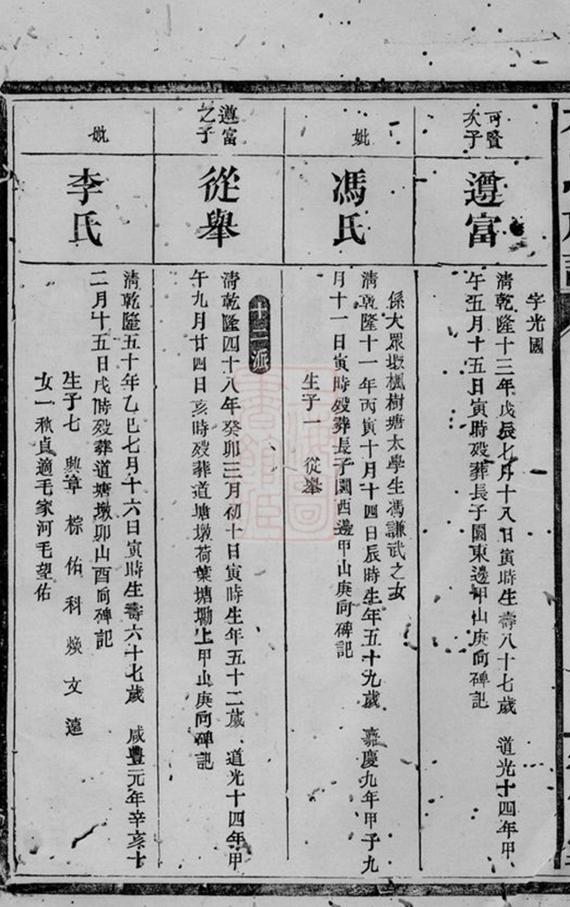 可賢
次子
遵富
字光國
清乾隆十三年戊辰七月十八日寅時生壽八十七歲　道光十四年甲
午五月十五日寅時歿葬長子園東邊甲山庚向碑記
妣
馮氏
係大眾堰楓樹塘太學生馮謙武之女
清乾隆十一年丙寅十月十四日辰時生年五十九歲　嘉慶九年甲子九
月十一日寅時歿葬長子園西邊甲山庚向碑記
生子一　從舉
遵富
之子
從舉
十二派
清乾隆四十八年癸卯三月初十日寅時生年五十二歲　道光十四年甲
午九月廿四日亥時歿葬道塘墩荷葉塘墈上甲山庚向碑記
妣
李氏
清乾隆五十年乙巳七月十六日寅時生壽六十七歲　咸豐元年辛亥十
二月十五日戌時歿葬道塘墩卯山酉向碑記
生子七　興章　棕　佑　科　煥　文　遠
女一秋貞適毛家河毛望佑